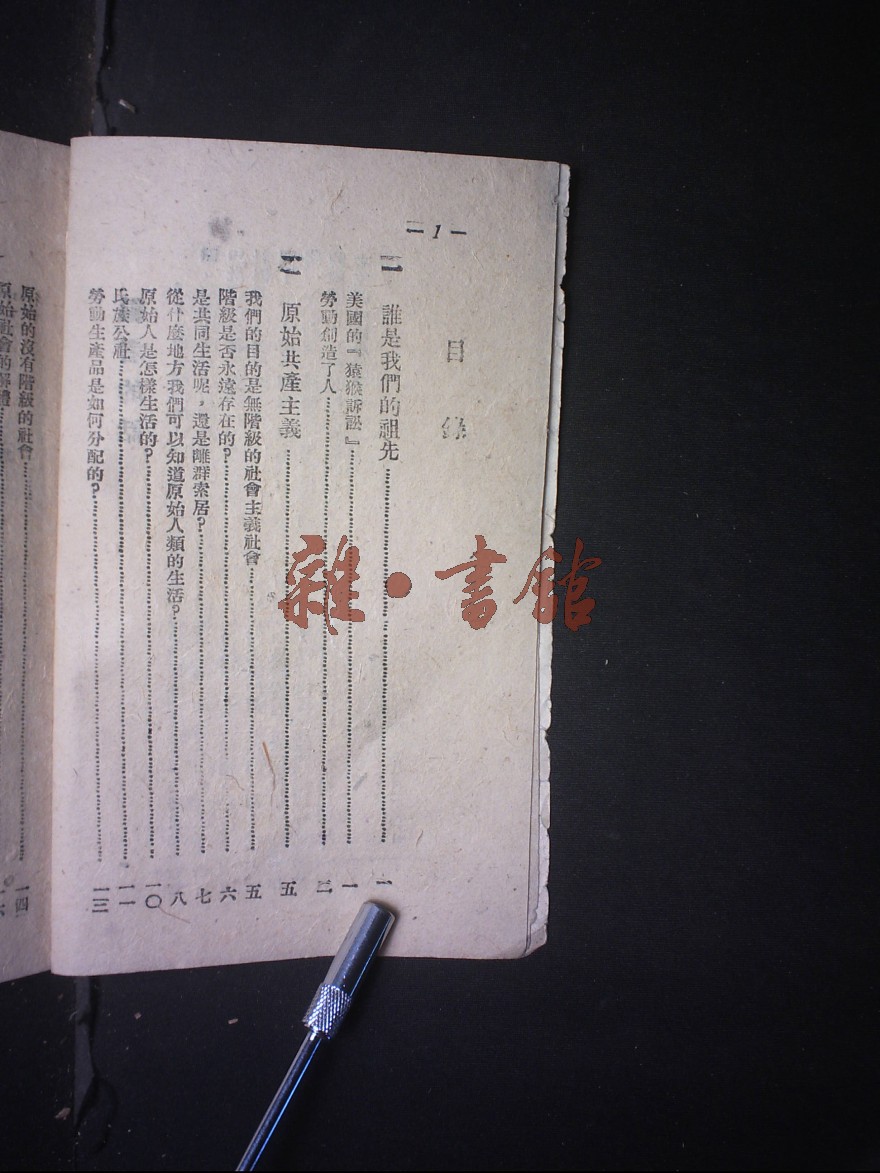 — 1 —
目錄
一 誰是我們的祖先……一
美國的『猿猴訴訟』……一
勞動創造了人……三
二 原始共產主義……五
我們的目的是無階級的社會主義社會……五
階級是否永遠存在的？……六
是共同生活呢，還是離群索居？……七
從什麼地方我們可以知道原始人類的生活？……八
原始人是怎樣生活的？……一〇
氏族公社……一一
勞動生產品是如何分配的？……一三
原始的沒有階級的社會……一四
原始社會的解體……一六
雜·書館